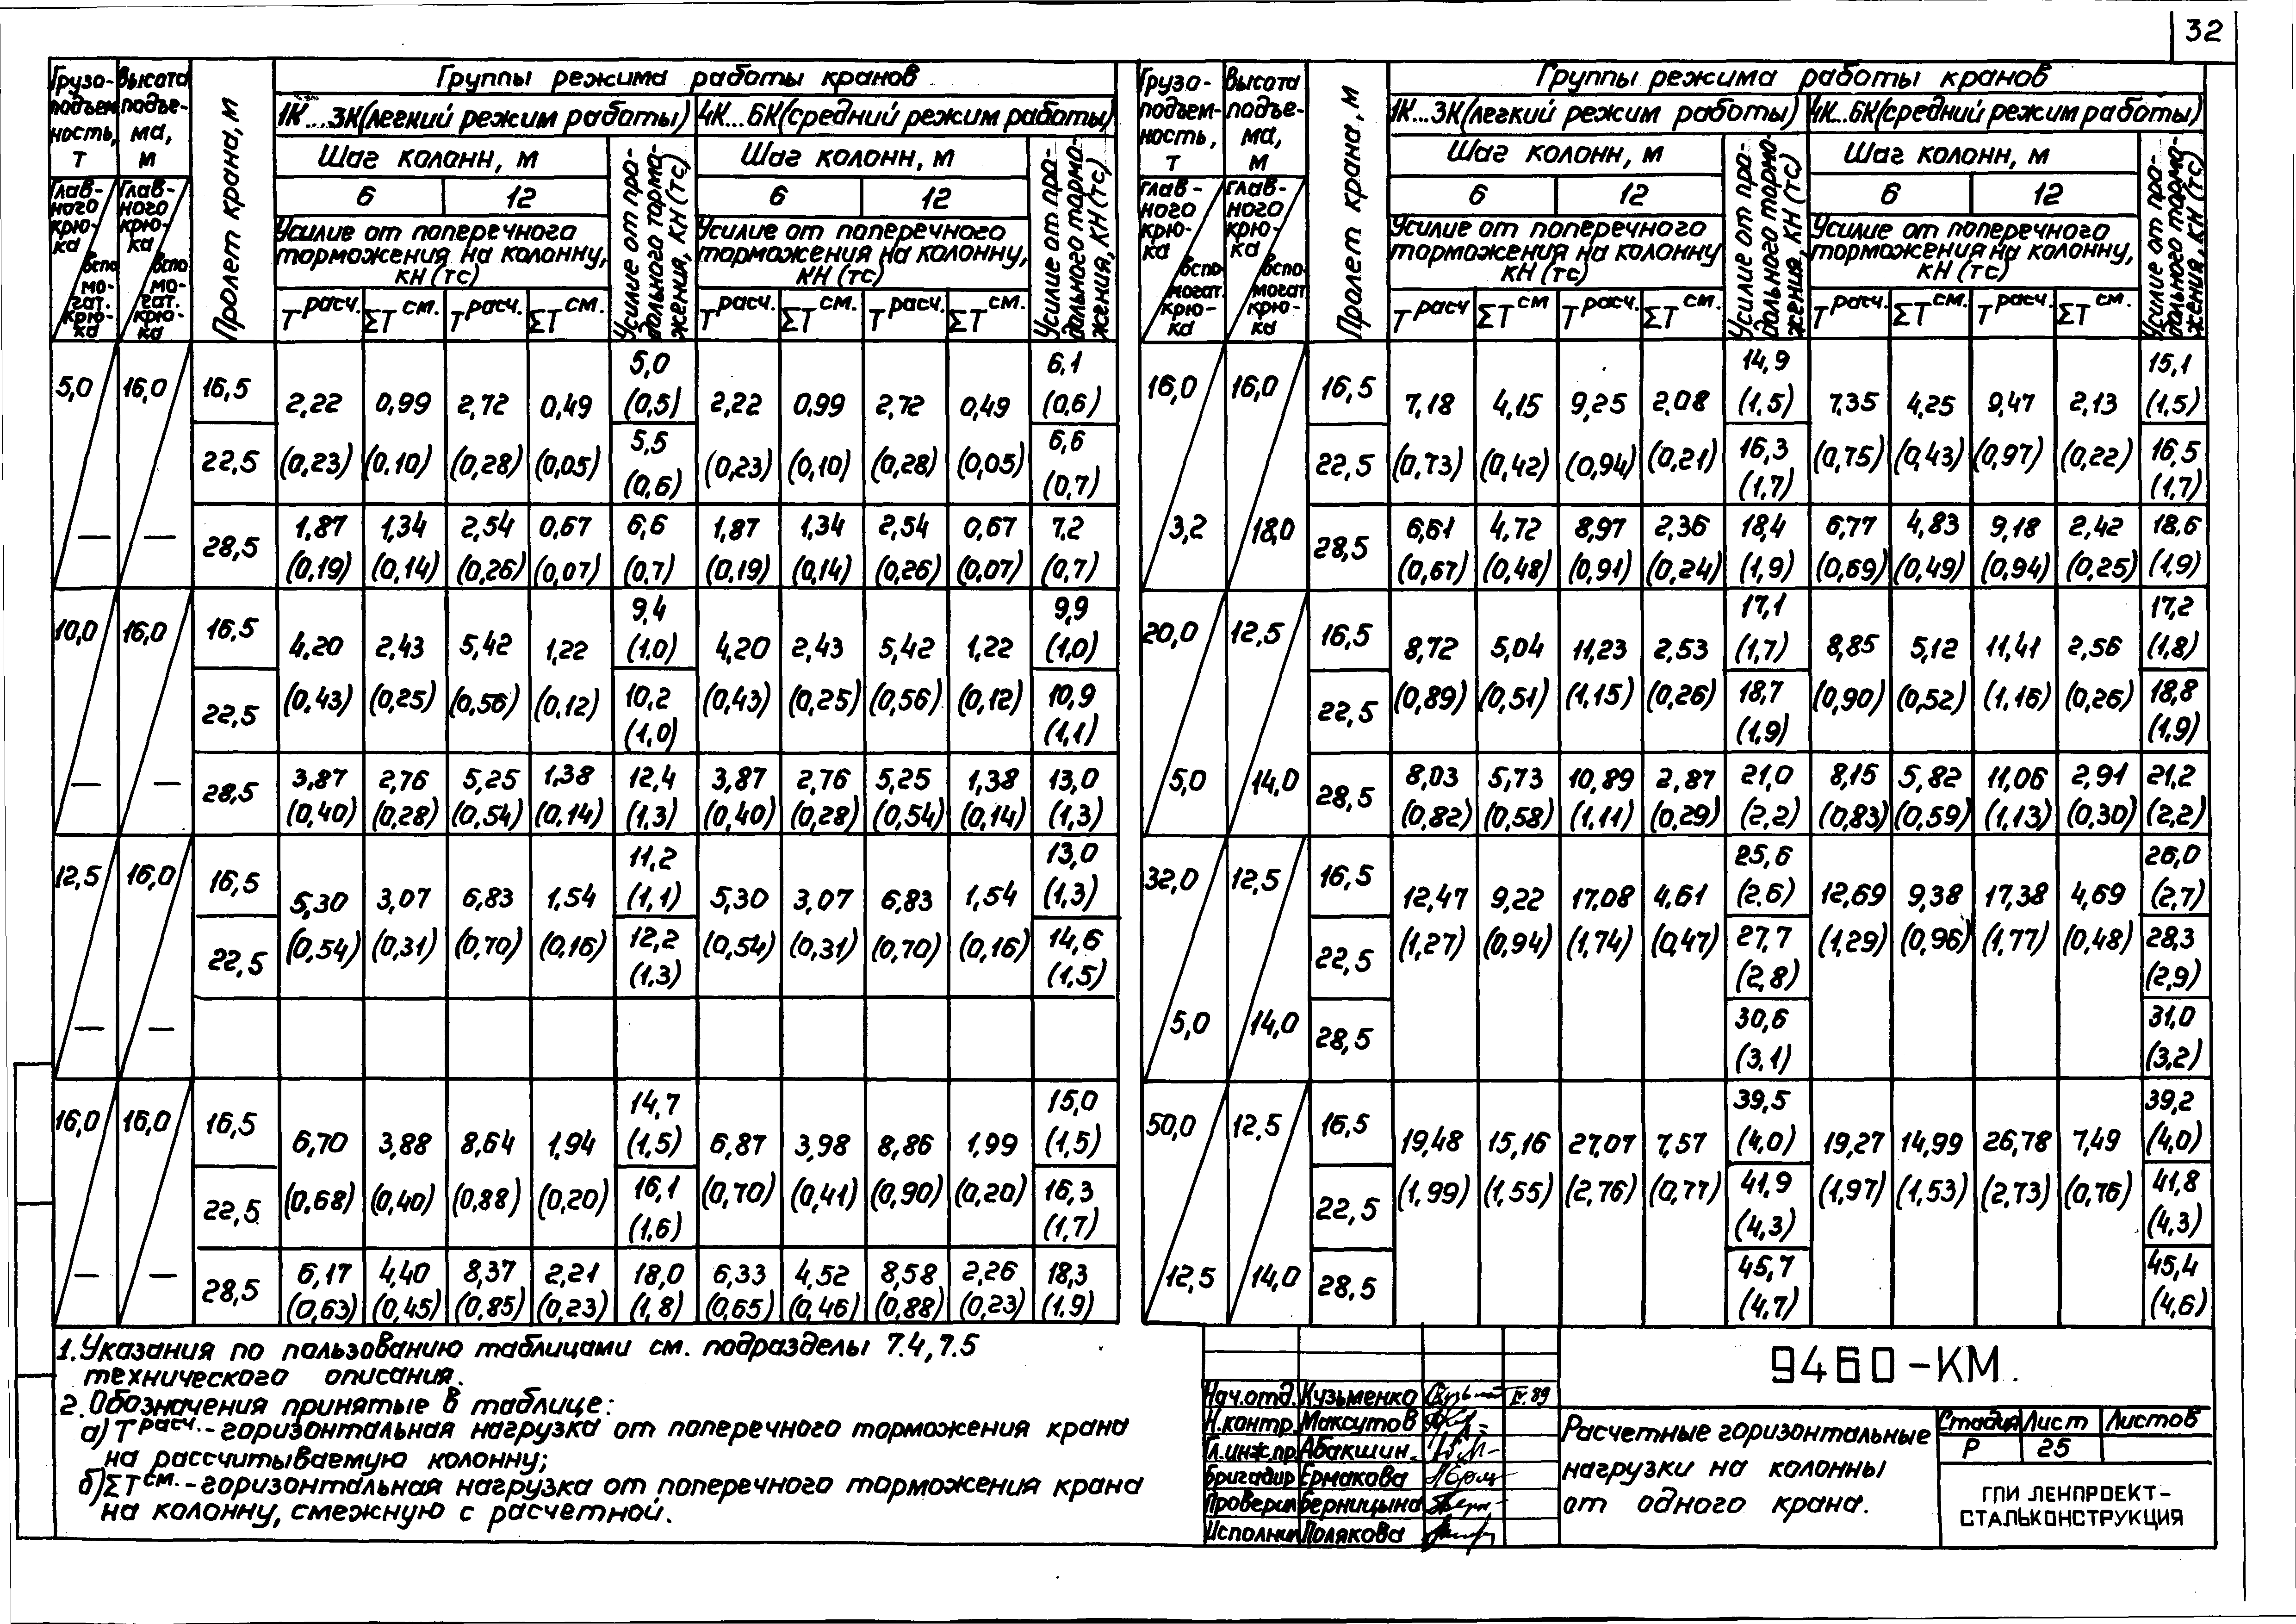 32
Грузо-
подъем
ность,
т
Высота
подъе-
ма,
м
Глав-
ного
крю-
ка
вспо
мо-
гат.
крю-
ка
Глав-
ного
крю-
ка
вспо
мо-
гат.
крю-
ка
Пролет крана, м
Группы режима работы кранов
1К...3К(легкий режим работы) 4К...6К(средний режим работы)
Шаг колонн, м Шаг колонн, м
6 12 6 12
Усилие от поперечного
торможения на колонну,
кН (тс)
Усилие от про-
дольного тормо-
жения, кН (тс)
Усилие от поперечного
торможения на колонну,
кН (тс)
Усилие от про-
дольного тормо-
жения, кН (тс)
Tрасч. ΣTсм. Tрасч. ΣTсм. Tрасч. ΣTсм. Tрасч. ΣTсм.
5,0 16,0 16,5 2,22 0,99 2,72 0,49 5,0 2,22 0,99 2,72 0,49 6,1
(0,5) (0,6)
22,5 (0,23) (0,10) (0,28) (0,05) 5,5 (0,23) (0,10) (0,28) (0,05) 6,6
(0,6) (0,7)
— — 28,5 1,87 1,34 2,54 0,67 6,6 1,87 1,34 2,54 0,67 7,2
(0,19) (0,14) (0,26) (0,07) (0,7) (0,19) (0,14) (0,26) (0,07) (0,7)
10,0 16,0 16,5 4,20 2,43 5,42 1,22 9,4 4,20 2,43 5,42 1,22 9,9
(1,0) (1,0)
22,5 (0,43) (0,25) (0,56) (0,12) 10,2 (0,43) (0,25) (0,56) (0,12) 10,9
(1,0) (1,1)
— — 28,5 3,87 2,76 5,25 1,38 12,4 3,87 2,76 5,25 1,38 13,0
(0,40) (0,28) (0,54) (0,14) (1,3) (0,40) (0,28) (0,54) (0,14) (1,3)
12,5 16,0 16,5 5,30 3,07 6,83 1,54 11,2 5,30 3,07 6,83 1,54 13,0
(1,1) (1,3)
22,5 (0,54) (0,31) (0,70) (0,16) 12,2 (0,54) (0,31) (0,70) (0,16) 14,6
(1,3) (1,5)
— —
16,0 16,0 16,5 6,70 3,88 8,64 1,94 14,7 6,87 3,98 8,86 1,99 15,0
(1,5) (1,5)
22,5 (0,68) (0,40) (0,88) (0,20) 16,1 (0,70) (0,41) (0,90) (0,20) 16,3
(1,6) (1,7)
— — 28,5 6,17 4,40 8,37 2,21 18,0 6,33 4,52 8,58 2,26 18,3
(0,63) (0,45) (0,85) (0,23) (1,8) (0,65) (0,46) (0,88) (0,23) (1.9)
Грузо-
подъем-
ность,
т
Высота
подъе-
ма,
м
глав-
ного
крю-
ка
вспо
могат.
крю-
ка
глав-
ного
крю-
ка
вспо
могат
крю-
ка
Пролет крана, м
Группы режима работы кранов
1К...3К(легкий режим работы) 4К...6К(средний режим работы)
Шаг колонн, м Шаг колонн, м
6 12 6 12
Усилие от поперечного
торможения на колонну
кН (тс)
Усилие от про-
дольного тормо-
жения, кН (тс)
Усилие от поперечного
торможения на колонну,
кН (тс)
Усилие от про-
дольного тормо-
жения, кН (тс)
Tрасч ΣTсм Tрасч. ΣTсм. Tрасч. ΣTсм. Tрасч. ΣTсм.
16,0 16,0 16,5 7,18 4,15 9,25 2,08 14,9 7,35 4,25 9,47 2,13 15,1
(1,5) (1,5)
22,5 (0,73) (0,42) (0,94) (0,21) 16,3 (0,75) (0,43) (0,97) (0,22) 16,5
(1,7) (1,7)
3,2 18,0 28,5 6,61 4,72 8,97 2,36 18,4 6,77 4,83 9,18 2,42 18,6
(0,67) (0,48) (0,91) (0,24) (1,9) (0,69) (0,49) (0,94) (0,25) (1,9)
20,0 12,5 16,5 8,72 5,04 11,23 2,53 17,1 8,85 5,12 11,41 2,56 17,2
(1,7) (1,8)
22,5 (0,89) (0,51) (1,15) (0,26) 18,7 (0,90) (0,52) (1,16) (0,26) 18,8
(1,9) (1,9)
5,0 14,0 28,5 8,03 5,73 10,89 2,87 21,0 8,15 5,82 11,06 2,91 21,2
(0,82) (0,58) (1,11) (0,29) (2,2) (0,83) (0,59) (1,13) (0,30) (2,2)
32,0 12,5 16,5 12,47 9,22 17,08 4,61 25,6 12,69 9,38 17,38 4,69 26,0
(2,6) (2,7)
22,5 (1,27) (0,94) (1,74) (0,47) 27,7 (1,29) (0,96) (1,77) (0,48) 28,3
(2,8) (2,9)
5,0 14,0 28,5 30,6 31,0
(3,1) (3,2)
50,0 12,5 16,5 19,48 15,16 27,07 7,57 39,5 19,27 14,99 26,78 7,49 39,2
(4,0) (4,0)
22,5 (1,99) (1,55) (2,76) (0,77) 41,9 (1,97) (1,53) (2,73) (0,76) 41,8
(4,3) (4,3)
12,5 14,0 28,5 45,7 45,4
(4,7) (4,6)
1. Указания по пользованию таблицами см. подразделы 7.4, 7.5
технического описания.
2. Обозначения принятые в таблице:
а) Tрасч. - горизонтальная нагрузка от поперечного торможения крана
на рассчитываемую колонну;
б) ΣTсм. - горизонтальная нагрузка от поперечного торможения крана
на колонну, смежную с расчетной.
Нач.отд. Кузьменко IV.89
Н.контр. Максутов
Гл.инж.пр. Абакшин
Бригадир Ермакова
Проверил Берницына
Исполнил Полякова
9460-КМ.
Расчетные горизонтальные
нагрузки на колонны
от одного крана.
Стадия Лист Листов
Р 25
ГПИ ЛЕНПРОЕКТ-
СТАЛЬКОНСТРУКЦИЯ